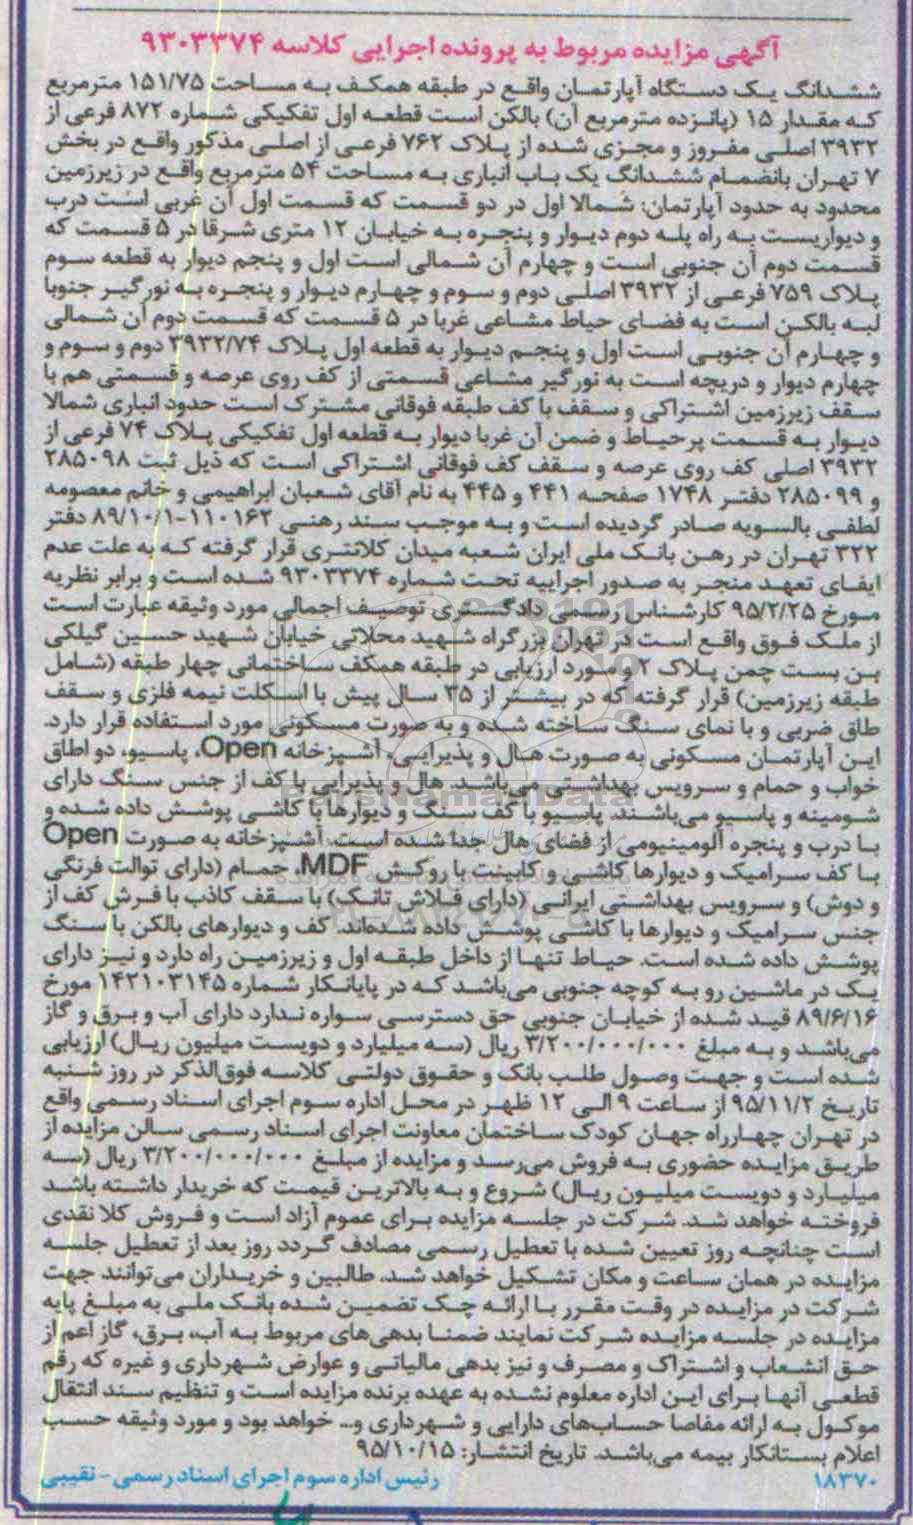 آگهی مزایده مربوط به پرونده اجرایی کلاسه ۹۳۰۳۳۷۴
ششدانگ یک دستگاه آپارتمان واقع در طبقه همکف به مساحت ۱۵۱/۷۵ مترمربع
که مقدار ۱۵ (پانزده مترمربع آن) بالکن است قطعه اول تفکیکی شماره ۸۷۲ فرعی از
۳۹۳۲ اصلی مفروز و مجزی شده از پلاک ۷۶۲ فرعی از اصلی مذکور واقع در بخش
۷ تهران بانضمام ششدانگ یک باب انباری به مساحت ۵۴ مترمربع واقع در زیرزمین
محدود به حدود آپارتمان: شمالا اول در دو قسمت که قسمت اول آن غربی است درب
و دیواریست به راه پله دوم دیوار و پنجره به خیابان ۱۲ متری شرقا در ۵ قسمت که
قسمت دوم آن جنوبی است و چهارم آن شمالی است اول و پنجم دیوار به قطعه سوم
پلاک ۷۵۹ فرعی از ۳۹۳۲ اصلی دوم و سوم و چهارم دیوار و پنجره به نورگیر جنوبا
لبه بالکن است به فضای حیاط مشاعی غربا در ۵ قسمت که قسمت دوم آن شمالی
و چهارم آن جنوبی است اول و پنجم دیوار به قطعه اول پلاک ۳۹۳۲/۷۴ دوم و سوم و
چهارم دیوار و دریچه است به نورگیر مشاعی قسمتی از کف روی عرصه و قسمتی هم با
سقف زیرزمین اشتراکی و سقف با کف طبقه فوقانی مشترک است حدود انباری شمالا
دیوار به قسمت پر حیاط و ضمن آن غربا دیوار به قطعه اول تفکیکی پلاک ۷۴ فرعی از
۳۹۳۲ اصلی کف روی عرصه و سقف کف فوقانی اشتراکی است که ذیل ثبت ۲۸۵۰۹۸
و ۲۸۵۰۹۹ دفتر ۱۷۴۸ صفحه ۴۴۱ و ۴۴۵ به نام آقای شعبان ابراهیمی و خانم معصومه
لطفی بالسویه صادر گردیده است و به موجب سند رهنی ۱۱۰۱۶۲-۸۹/۱۰/۱ دفتر
۳۲۲ تهران در رهن بانک ملی ایران شعبه میدان کلانتری قرار گرفته که به علت عدم
ایفای تعهد منجر به صدور اجراییه تحت شماره ۹۳۰۳۳۷۴ شده است و برابر نظریه
مورخ ۹۵/۲/۲۵ کارشناس رسمی دادگستری توصیف اجمالی مورد وثیقه عبارت است
از ملک فوق واقع است در تهران بزرگراه شهید محلاتی خیابان شهید حسین گیلکی
بن بست چمن پلاک ۲ و مورد ارزیابی در طبقه همکف ساختمانی چهار طبقه (شامل
طبقه زیرزمین) قرار گرفته که در بیشتر از ۳۵ سال پیش با اسکلت نیمه فلزی و سقف
طاق ضربی و با نمای سنگ ساخته شده و به صورت مسکونی مورد استفاده قرار دارد.
این آپارتمان مسکونی به صورت هال و پذیرایی، آشپزخانه Open، پاسیو، دو اطاق
خواب و حمام و سرویس بهداشتی می‌باشد. هال و پذیرایی با کف از جنس سنگ دارای
شومینه و پاسیو می‌باشند. پاسیو با کف سنگ و دیوارها با کاشی پوشش داده شده و
با درب و پنجره آلومینیومی از فضای هال جدا شده است. آشپزخانه به صورت Open
با کف سرامیک و دیوارها کاشی و کابینت با روکش MDF، حمام (دارای توالت فرنگی
و دوش) و سرویس بهداشتی ایرانی (دارای فلاش تانک) با سقف کاذب با فرش کف از
جنس سرامیک و دیوارها با کاشی پوشش داده شده‌اند. کف و دیوارهای بالکن با سنگ
پوشش داده شده است. حیاط تنها از داخل طبقه اول و زیرزمین راه دارد و نیز دارای
یک در ماشین رو به کوچه جنوبی می‌باشد که در پایانکار شماره ۱۴۲۱۰۳۱۴۵ مورخ
۸۹/۶/۱۶ قید شده از خیابان جنوبی حق دسترسی سواره ندارد دارای آب و برق و گاز
می‌باشد و به مبلغ ۳/۲۰۰/۰۰۰/۰۰۰ ریال (سه میلیارد و دویست میلیون ریال) ارزیابی
شده است و جهت وصول طلب بانک و حقوق دولتی کلاسه فوق‌الذکر در روز شنبه
تاریخ ۹۵/۱۱/۲ از ساعت ۹ الی ۱۲ ظهر در محل اداره سوم اجرای اسناد رسمی واقع
در تهران چهارراه جهان کودک ساختمان معاونت اجرای اسناد رسمی سالن مزایده از
طریق مزایده حضوری به فروش می‌رسد و مزایده از مبلغ ۳/۲۰۰/۰۰۰/۰۰۰ ریال (سه
میلیارد و دویست میلیون ریال) شروع و به بالاترین قیمت که خریدار داشته باشد
فروخته خواهد شد. شرکت در جلسه مزایده برای عموم آزاد است و فروش کلا نقدی
است چنانچه روز تعیین شده با تعطیل رسمی مصادف گردد روز بعد از تعطیل جلسه
مزایده در همان ساعت و مکان تشکیل خواهد شد. طالبین و خریداران می‌توانند جهت
شرکت در مزایده در وقت مقرر با ارائه چک تضمین شده بانک ملی به مبلغ پایه
مزایده در جلسه مزایده شرکت نمایند ضمنا بدهی‌های مربوط به آب، برق، گاز اعم از
حق انشعاب و اشتراک و مصرف و نیز بدهی مالیاتی و عوارض شهرداری و غیره که رقم
قطعی آنها برای این اداره معلوم نشده به عهده برنده مزایده است و تنظیم سند انتقال
موکول به ارائه مفاصا حساب‌های دارایی و شهرداری و... خواهد بود و مورد وثیقه حسب
اعلام بستانکار بیمه می‌باشد. تاریخ انتشار: ۹۵/۱۰/۱۵
۱۸۳۷۰ رئیس اداره سوم اجرای اسناد رسمی - نقیبی
ParsNamadData